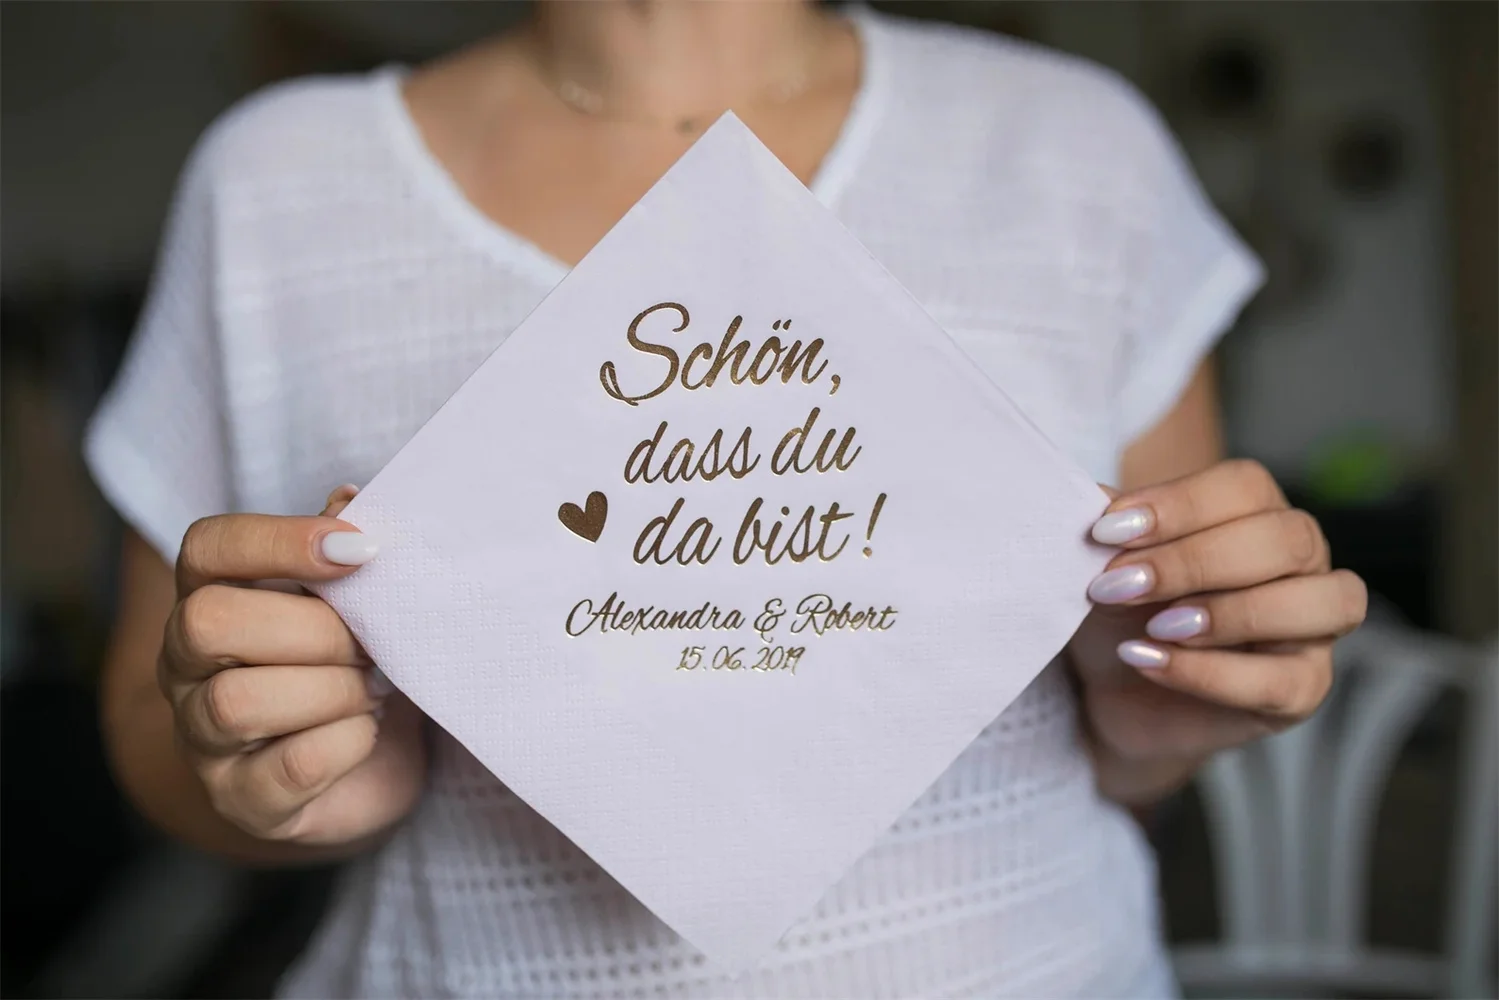 Schön,
dass du
da bist!
Alexandra & Robert
15.06.2019